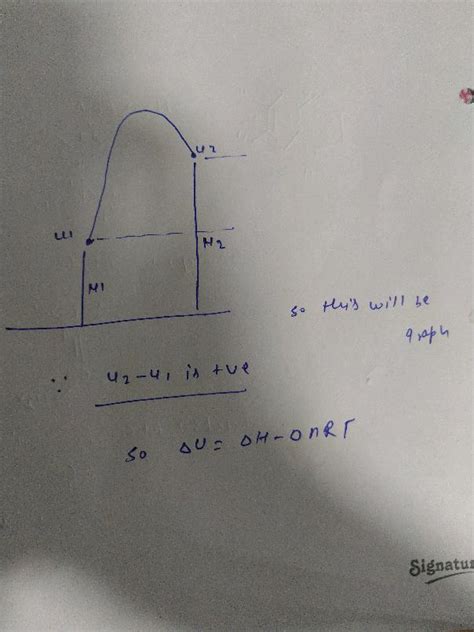 u2
u1
H2
H1
so this will be
graph
∵ u2-u1 is +ve
so ΔU = ΔH-ΔnRT
Signatu